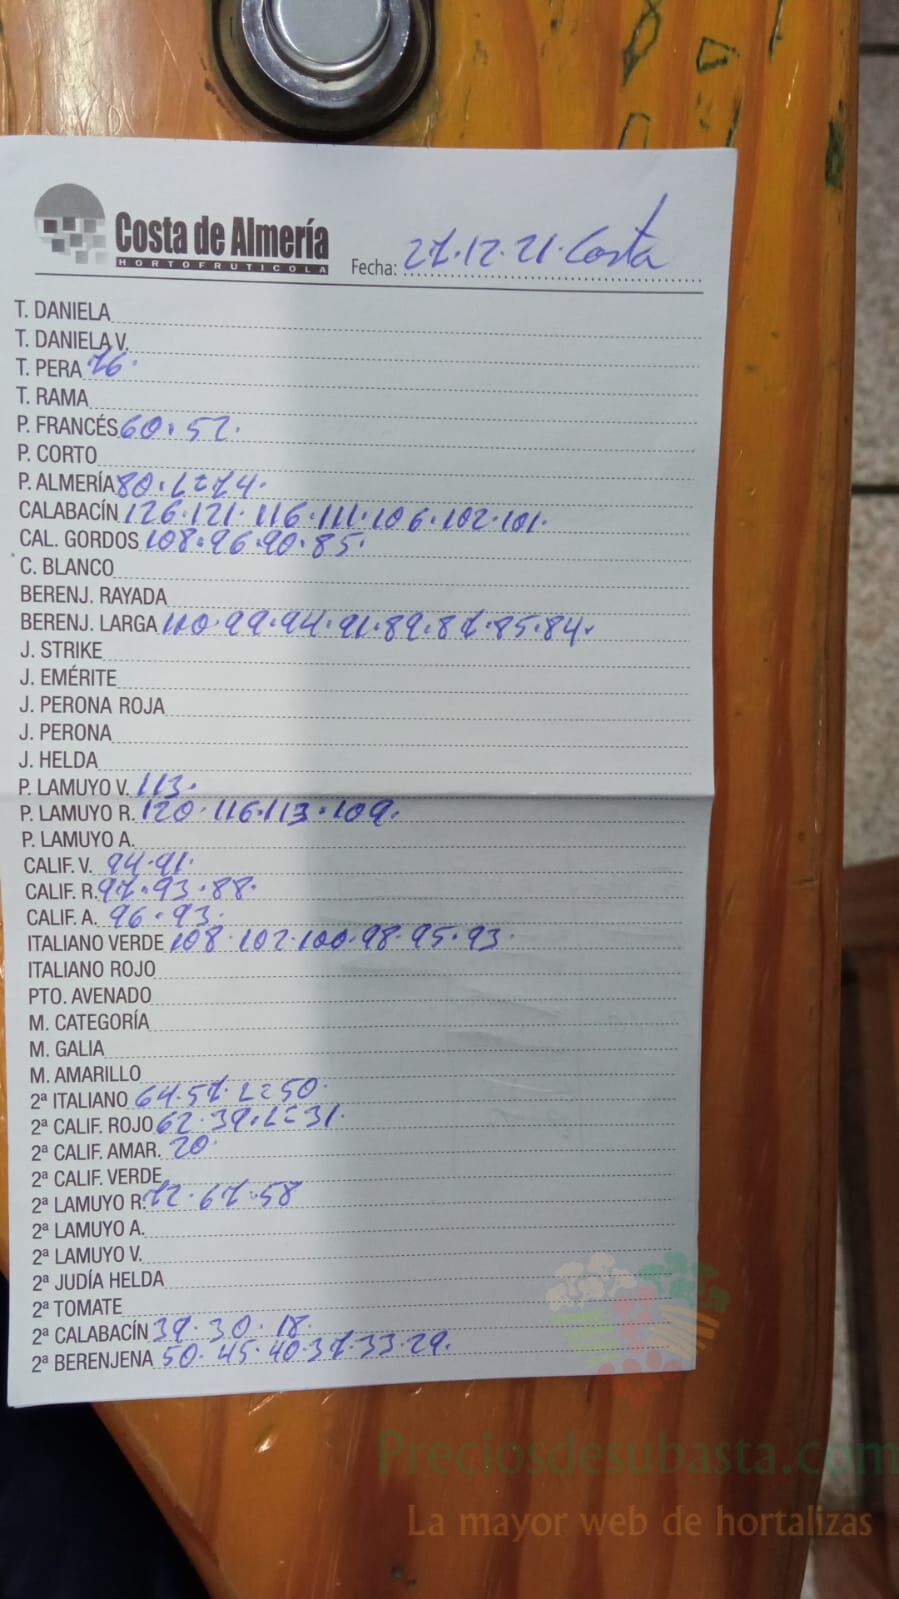 Costa de Almería
HORTOFRUTICOLA
Fecha: 27.12.21. Costa
T. DANIELA
T. DANIELA V.
T. PERA 76.
T. RAMA
P. FRANCÉS 60. 52.
P. CORTO
P. ALMERÍA 80. L=74.
CALABACÍN 126.121. 116.111.106.102.101.
CAL. GORDOS 108.96.90.85.
C. BLANCO
BERENJ. RAYADA
BERENJ. LARGA 110.99.94.91.89.87.85.84.
J. STRIKE
J. EMÉRITE
J. PERONA ROJA
J. PERONA
J. HELDA
P. LAMUYO V. 113.
P. LAMUYO R. 120. 116.113.109.
P. LAMUYO A.
CALIF. V. 94.91.
CALIF. R. 97.93.88.
CALIF. A. 96.93.
ITALIANO VERDE 108.102.100.98.95.93.
ITALIANO ROJO
PTO. AVENADO
M. CATEGORÍA
M. GALIA
M. AMARILLO
2ª ITALIANO 64.57. L=50.
2ª CALIF. ROJO 62.39. L=31.
2ª CALIF. AMAR. 20.
2ª CALIF. VERDE
2ª LAMUYO R. 72.67.58
2ª LAMUYO A.
2ª LAMUYO V.
2ª JUDÍA HELDA
2ª TOMATE
2ª CALABACÍN 39.30.18.
2ª BERENJENA 50.45.40.37.33.29.
Preciosdesubasta.com
La mayor web de hortalizas